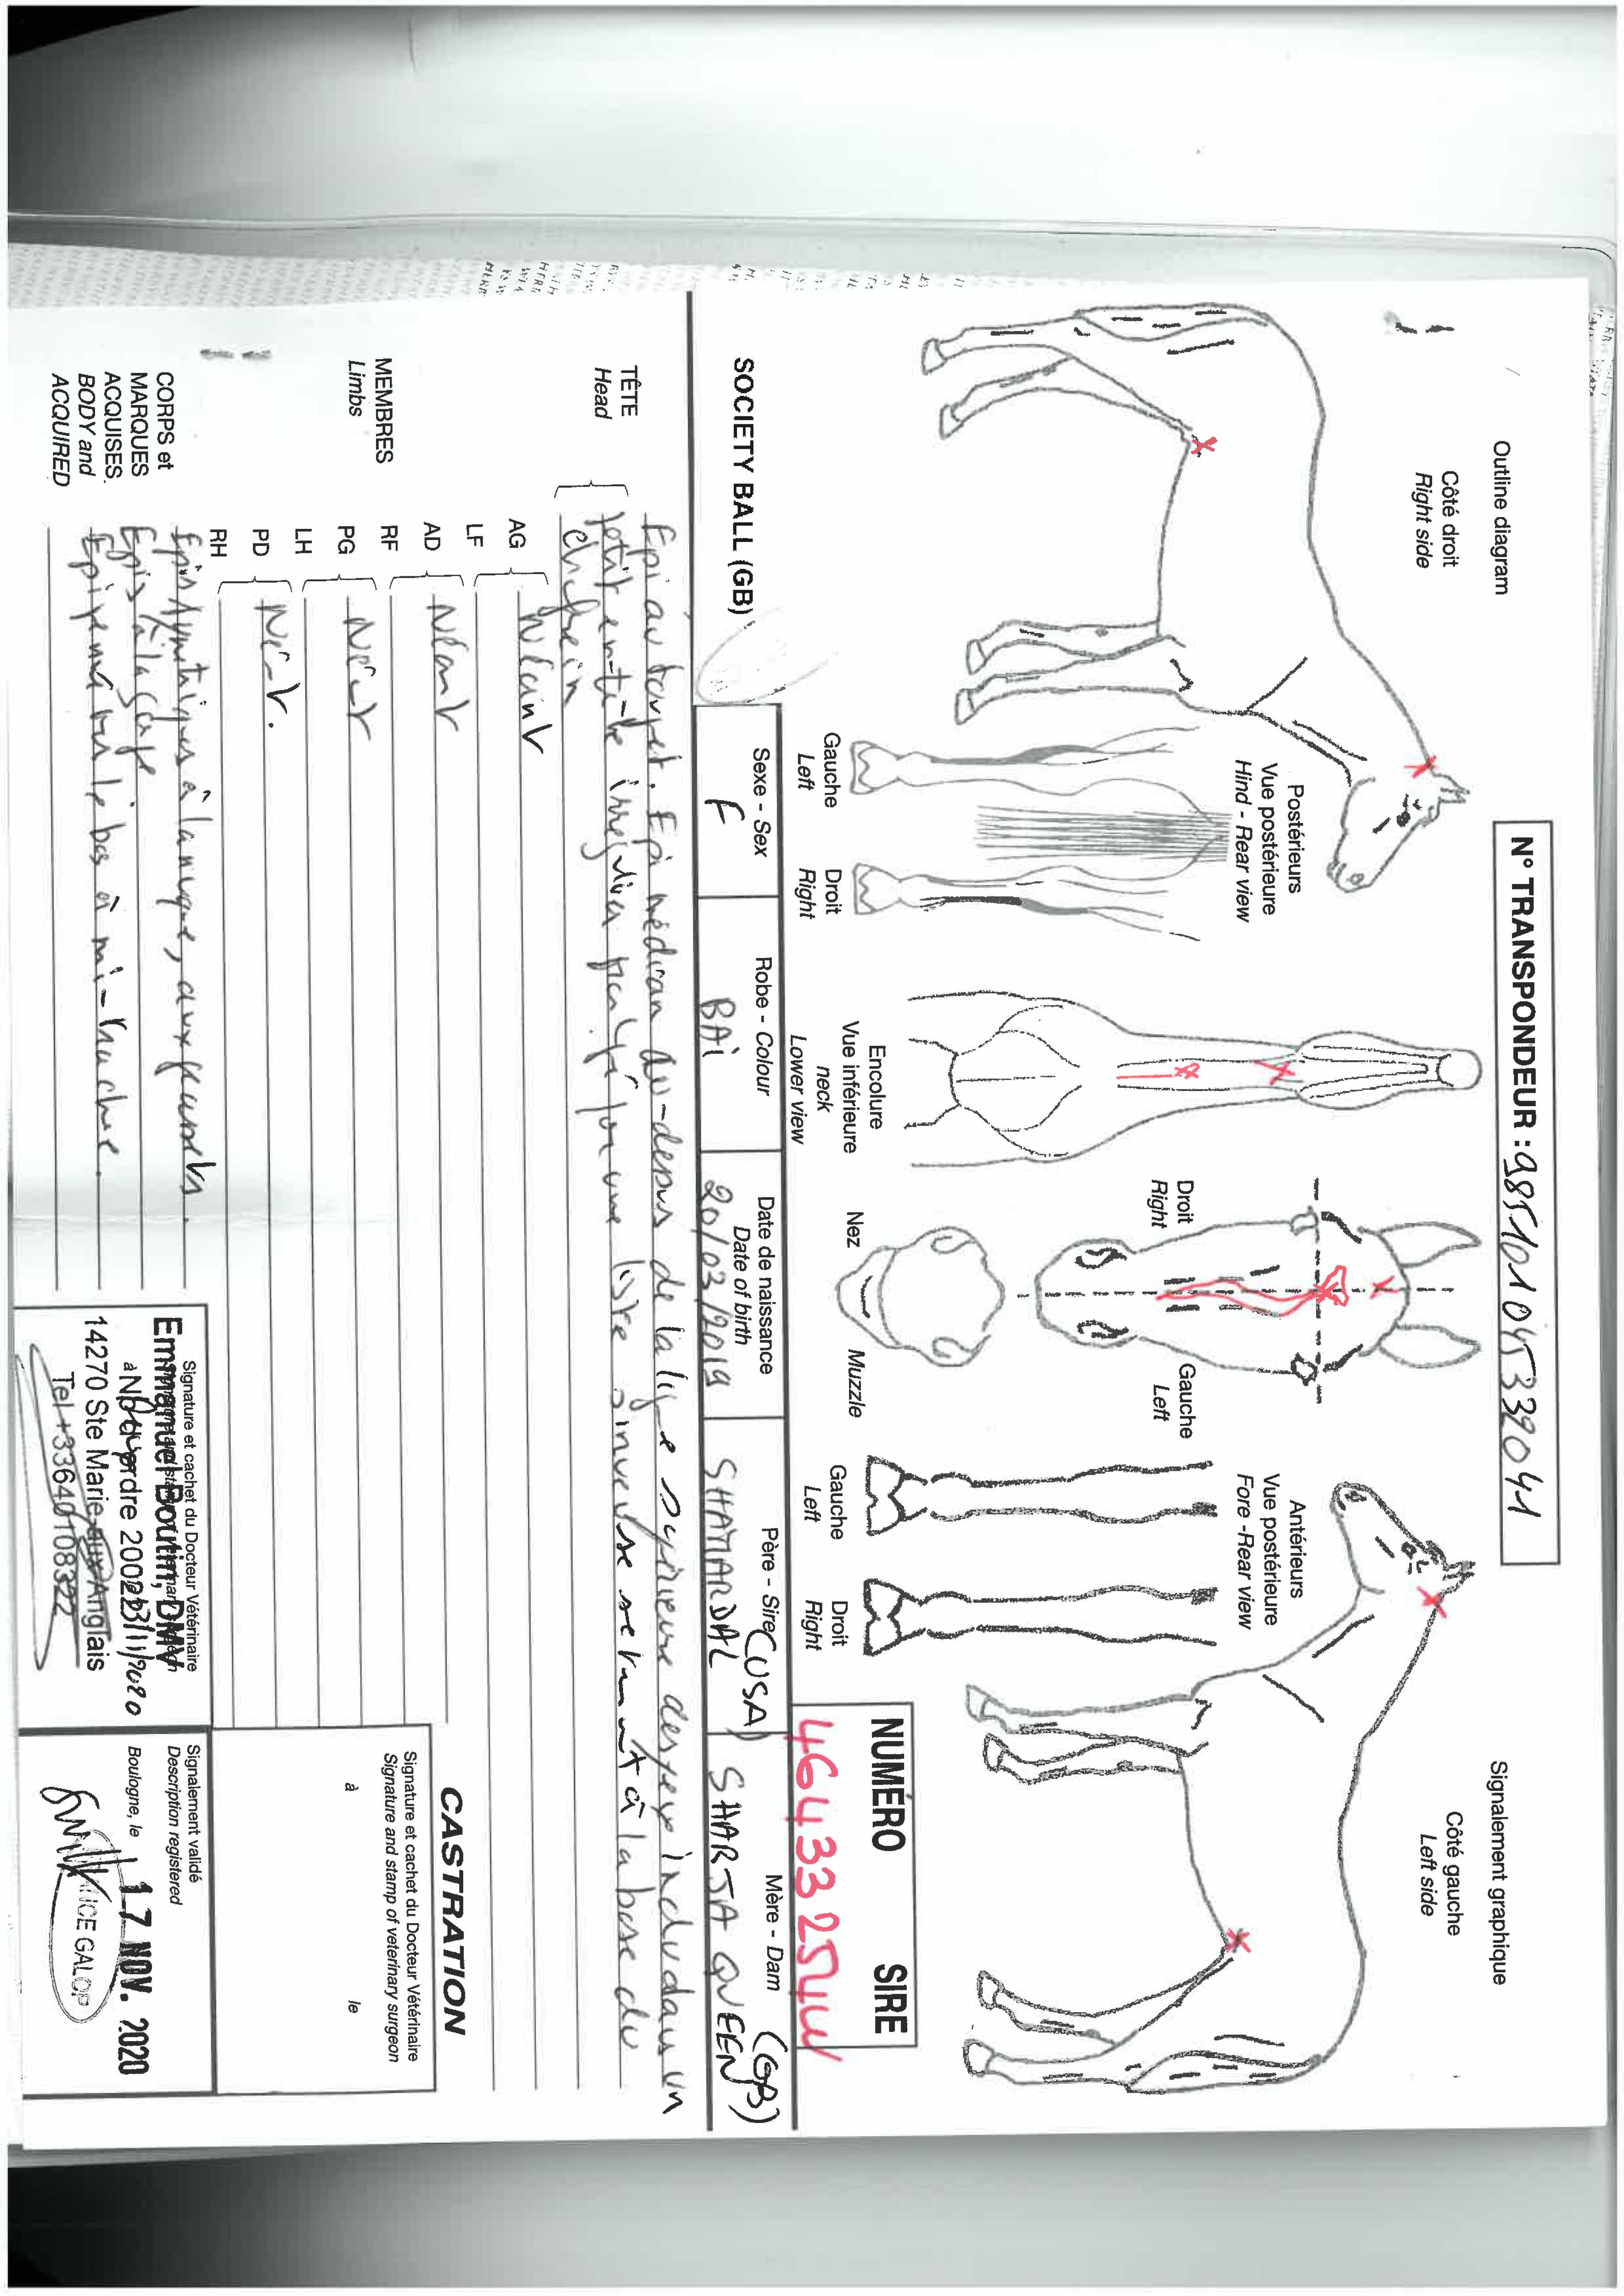 Outline diagram
Signalement graphique
N° TRANSPONDEUR : 985101045339041
Côté droit
Right side
Côté gauche
Left side
Postérieurs
Vue postérieure
Hind - Rear view
Gauche
Left
Droit
Right
Encolure
Vue inférieure
neck
Lower view
Droit
Right
Gauche
Left
Nez
Muzzle
Antérieurs
Vue postérieure
Fore -Rear view
Gauche
Left
Droit
Right
NUMÉRO SIRE
46433254W
SOCIETY BALL (GB)
Sexe - Sex
F
Robe - Colour
BAI
Date de naissance
Date of birth
20/03/2019
Père - Sire
SHAMARDAL (USA)
Mère - Dam
SHARJA QUEEN (GB)
TÊTE
Head
Epi au toupet. Epi médian au-dessus de la ligne supérieure des yeux inclu dans un
petit en-tête irrégulier prolongé par une liste sinueuse se terminant à la base du
chanfrein
MEMBRES
Limbs
AG
LF
Néant
AD
RF
Néant
PG
LH
Néant
PD
RH
Néant.
CORPS et
MARQUES
ACQUISES.
BODY and
ACQUIRED
Epis symétriques à la nuque, aux grassets.
Epis à la gorge
Epi penné vers le bas à mi-trachée.
CASTRATION
Signature et cachet du Docteur Vétérinaire
Signature and stamp of veterinary surgeon
à le
Signature et cachet du Docteur Vétérinaire
Emmanuel Boutin, DMV
à N° d'ordre 20022
14270 Ste Marie aux Anglais
Tel +33640108322
Signalement validé
Description registered
Boulogne, le 17 NOV. 2020
GALOP